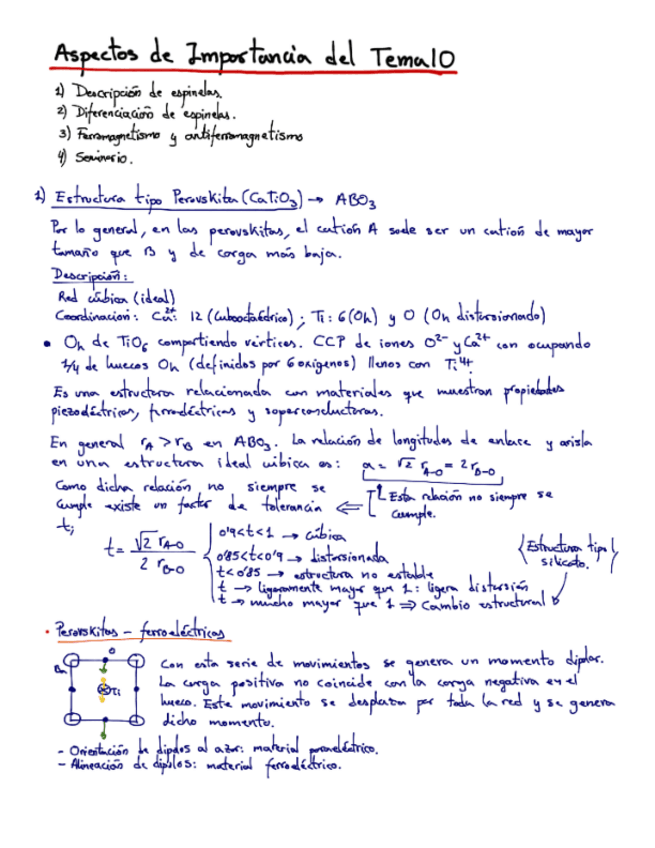 Aspectos de Importancia del Tema 10
1) Descripción de espinelas.
2) Diferenciación de espinelas.
3) Ferromagnetismo y antiferromagnetismo
4) Seminario.
1) Estructura tipo Perovskita (CaTiO3) → ABO3
Por lo general, en las perovskitas, el catión A suele ser un catión de mayor
tamaño que B y de carga más baja.
Descripción:
Red cúbica (ideal)
Coordinación: Ca2+: 12 (Cuboctaédrico); Ti: 6(Oh) y O (Oh distorsionado)
• Oh de TiO6 compartiendo vértices. CCP de iones O2- y Ca2+ con ocupando
1/4 de huecos Oh (definidos por 6 oxígenos) llenos con Ti4+
Es una estructura relacionada con materiales que muestran propiedades
piezoeléctricas, ferroeléctricas y superconductoras.
En general rA > rB en ABO3. La relación de longitudes de enlace y arista
en una estructura ideal cúbica es: a = √2 rA-O = 2 rB-O
Como dicha relación no siempre se
cumple existe un factor de tolerancia ⇐ Esta relación no siempre se
cumple.
t;
t = √2 rA-O / 2 rB-O
0'9<t<1 → cúbica
0'85<t<0'9 → distorsionada
t<0'85 → estructura no estable
t → ligeramente mayor que 1: ligera distorsión
t → mucho mayor que 1 ⇒ Cambio estructural
Estructura tipo
silicato.
• Perovskitas - ferroeléctricas
O
Ba
Ti
Con esta serie de movimientos se genera un momento dipolar.
La carga positiva no coincide con la carga negativa en el
hueco. Este movimiento se desplaza por toda la red y se genera
dicho momento.
- Orientación de dipolos al azar: material paraeléctrico.
- Alineación de dipolos: material ferroeléctrico.